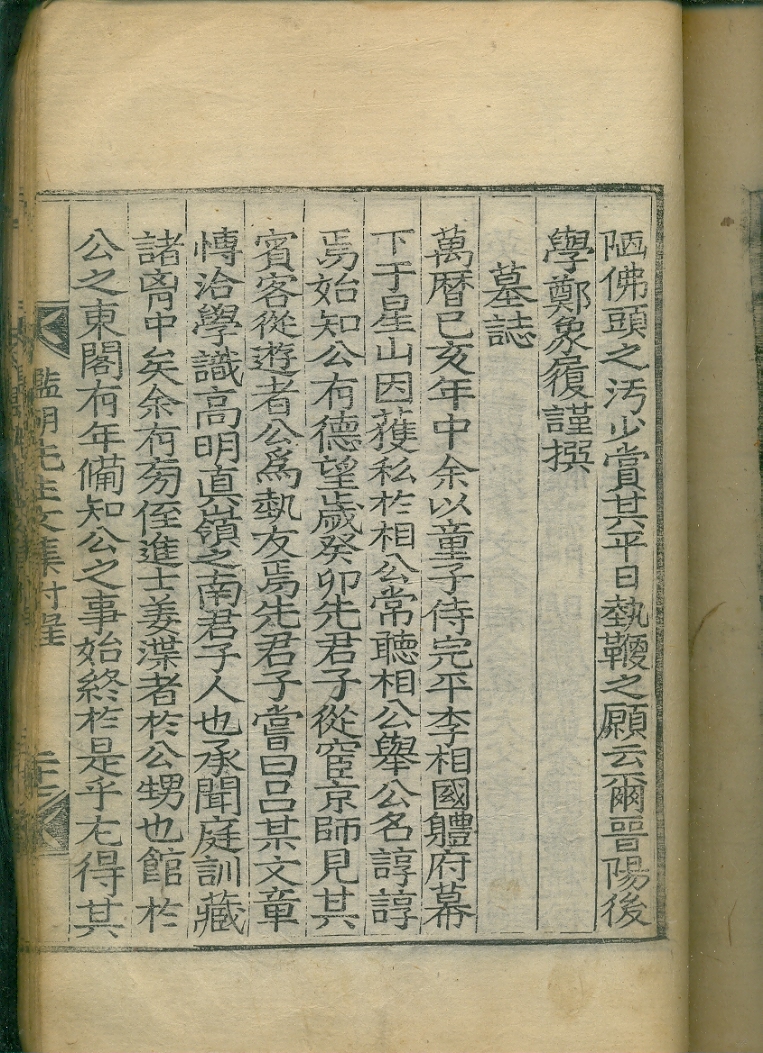 陋佛頭之汚少賞其平日執鞭之願云爾晉陽後
學鄭象履謹撰
墓誌
萬曆己亥年中余以童子侍完平李相國軆府幕
下于星山因獲私於相公常聽相公擧公名諄諄
焉始知公有德望歲癸卯先君子從宦京師見其
賓客從遊者公爲執友焉先君子嘗曰呂某文章
愽洽學識高明眞嶺之南君子人也承聞庭訓藏
諸脔中矣余有旁侄進士姜渫者於公甥也館於
公之東閣有年備知公之事始終於是乎尤得其
鑑湖先生文集附